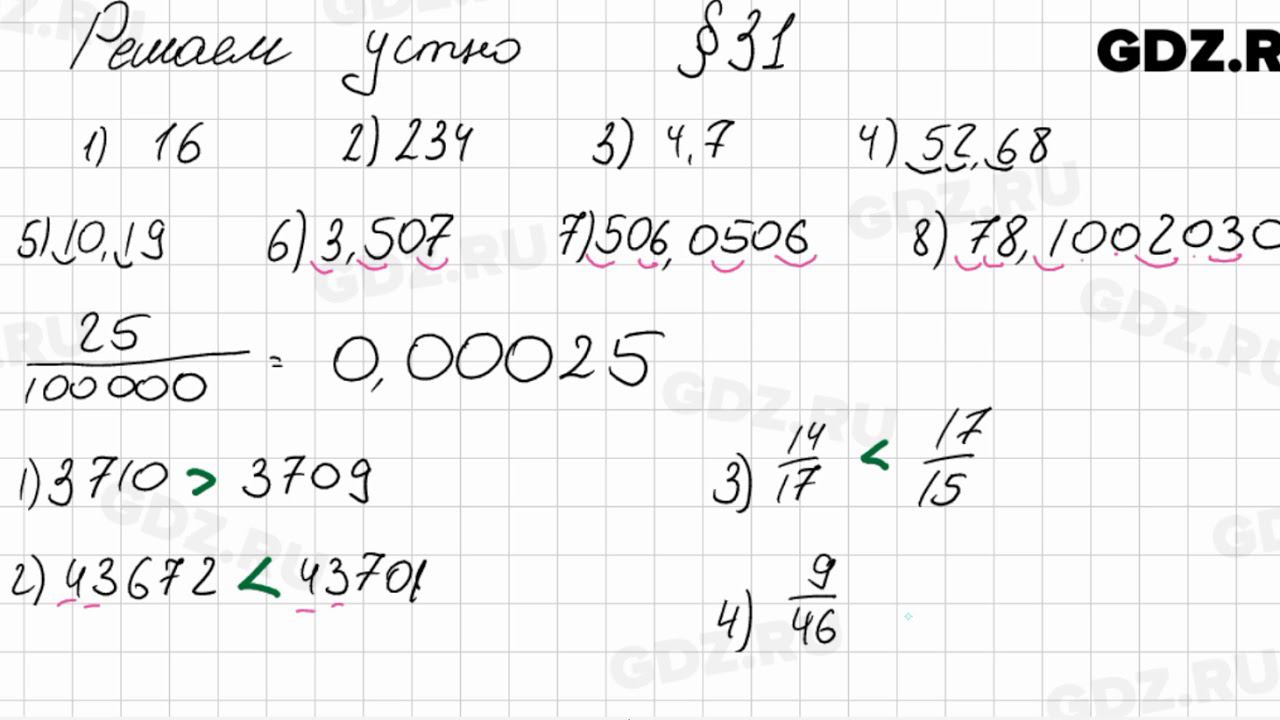 Решаем устно § 31
GDZ.R
1) 16 2) 234 3) 4,7 4) 52,68
5) 10,19 6) 3,507 7) 506,0506 8) 78,1002030
25/100000 = 0,00025
1) 3710 > 3709
3) 14/17 < 17/15
2) 43672 < 43701
4) 9/46